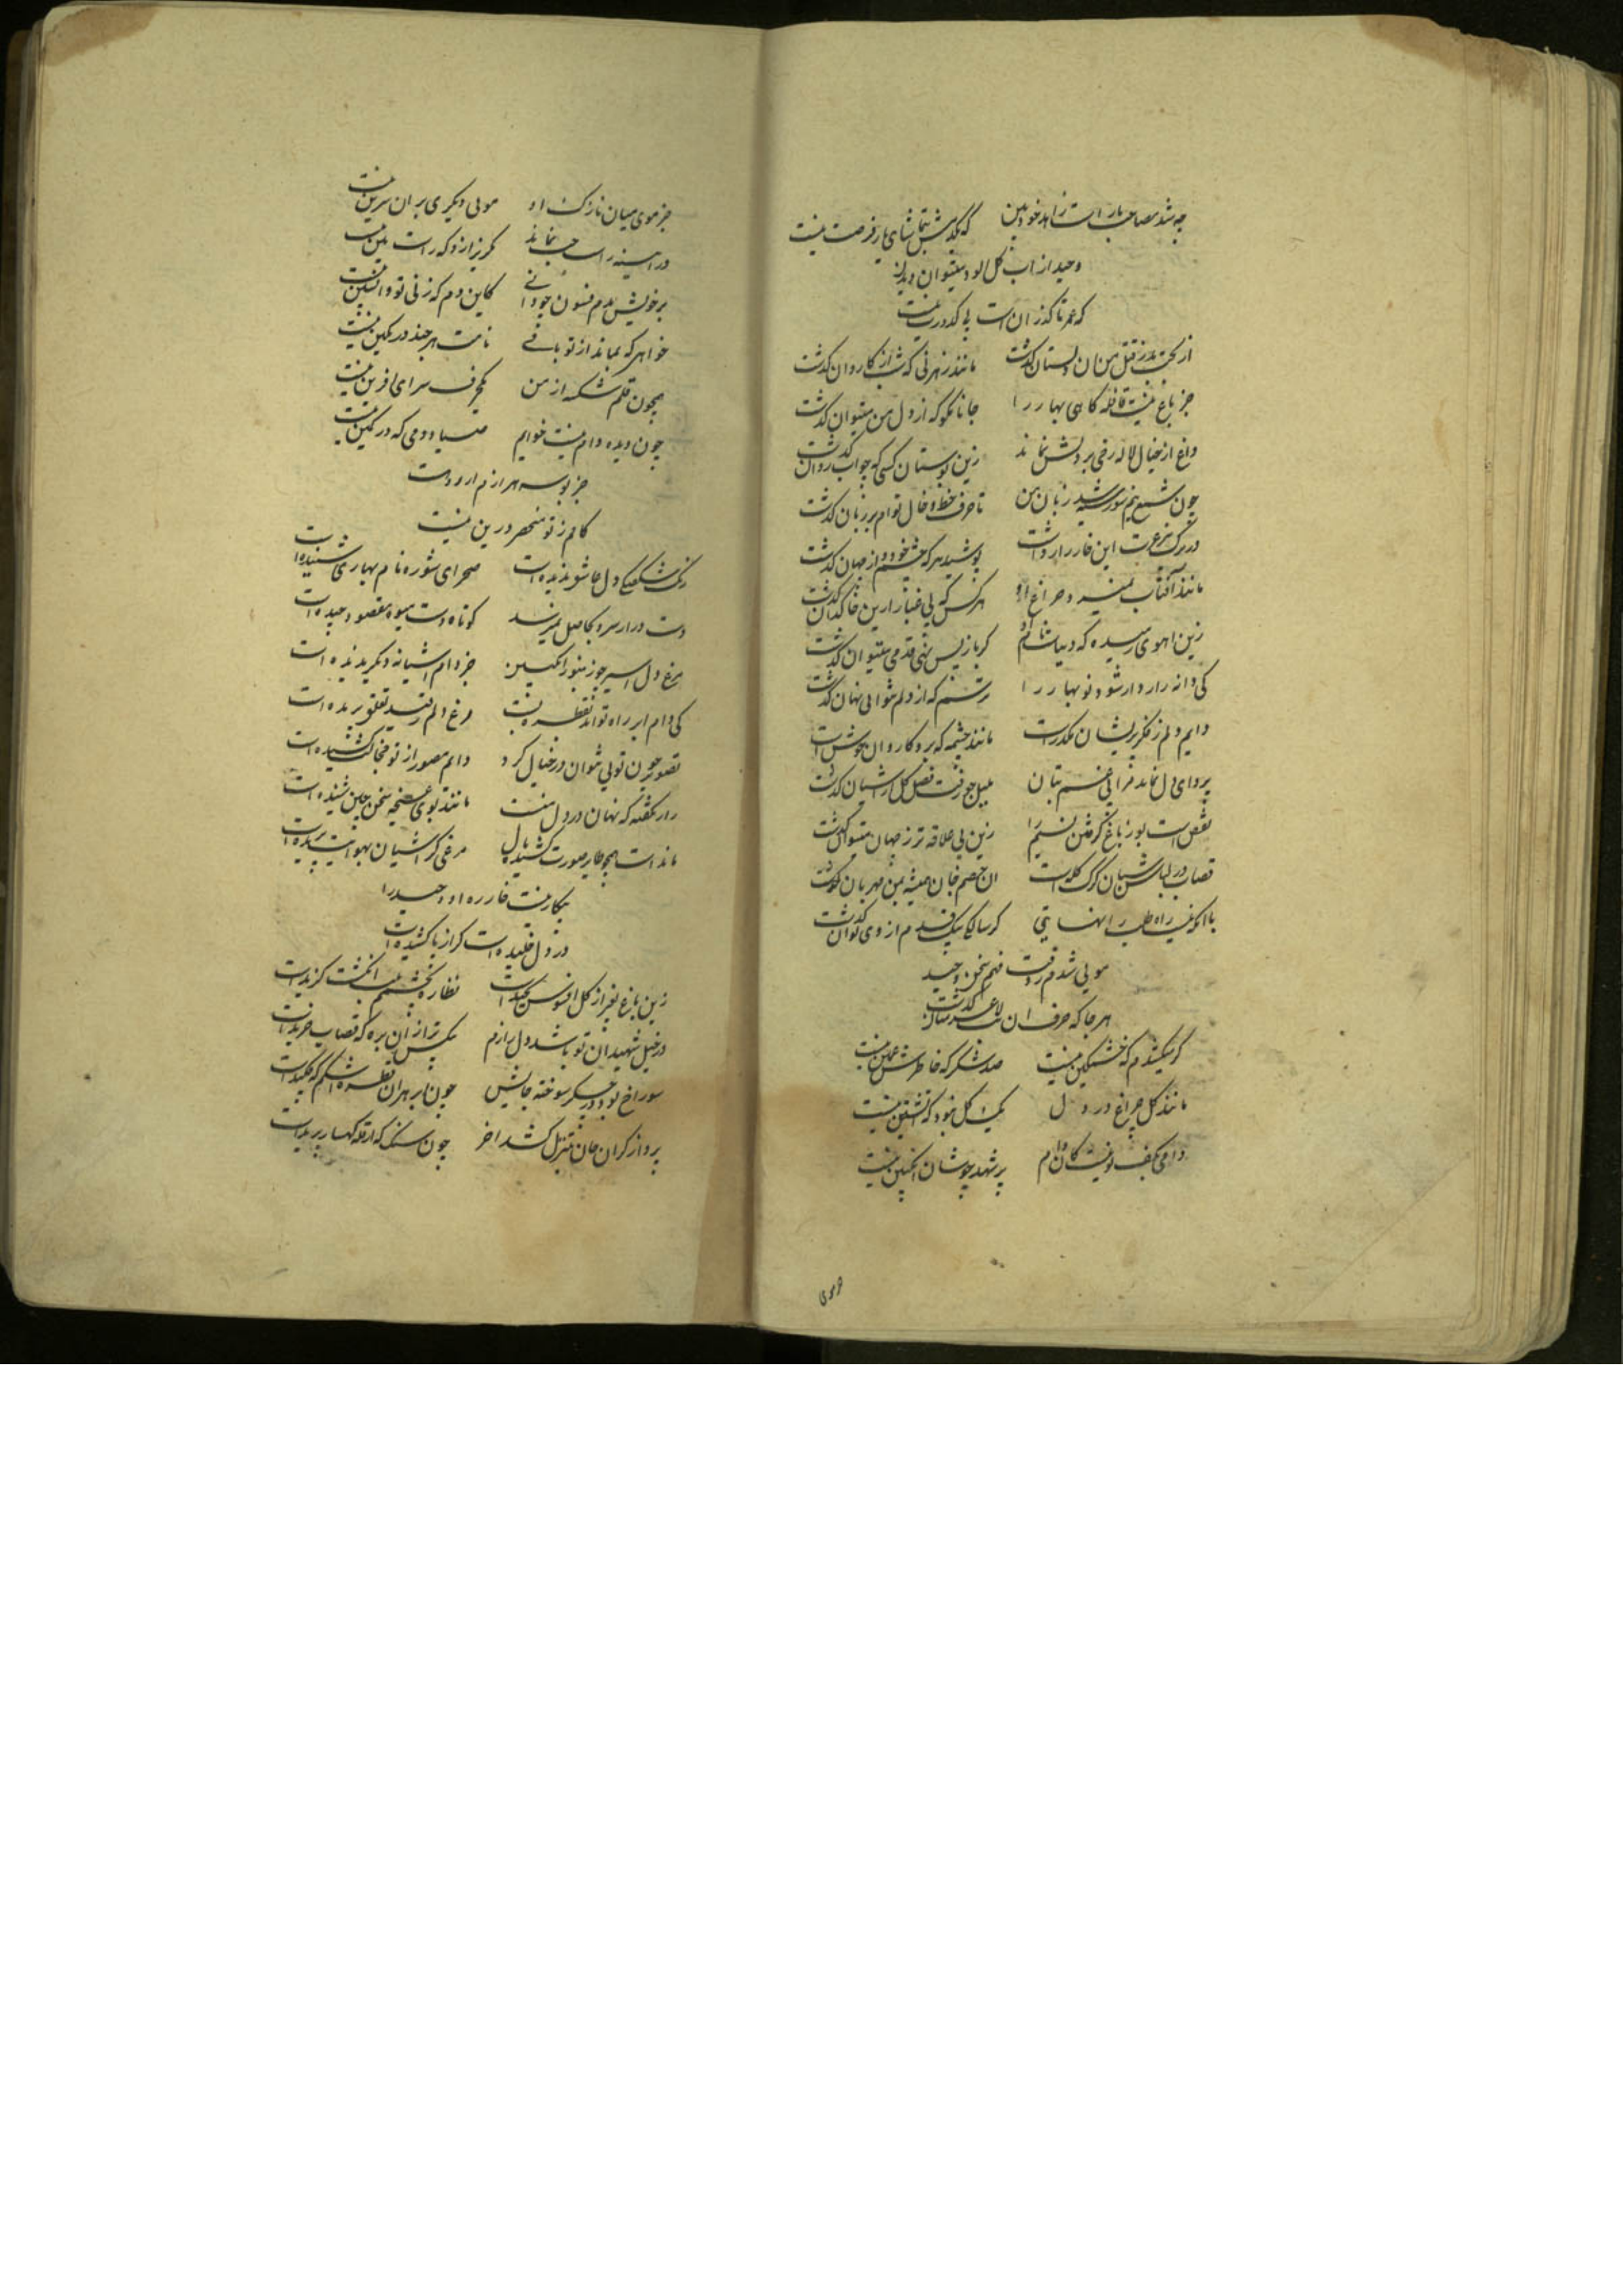 چه شد مصاحب یار است زاهد خودبین که کدبش تماشای یار فرصت نیست
وحید از آب گل الود میتوان دیدن
که عمر تا گذران است بی کدورت نیست
از بخت بد ز قتل من ان دلستان گذشت مانند رهزنی که شب از کاروان گذشت
جز باغ نیست قافله گاهی بهار را جانا مگو که از دل من میتوان گذشت
داغ از خیال لاله رخی بر دلش نماند زین بوستان کسی که چو آب روان گذشت
چون شمع بزم سوز شد زبان من تا حرف خط و خال توام بر زبان گذشت
در برک عزت این خار را رواست پوشید هر که چشم خود از جهان گذشت
مانند آفتاب نمیرد چراغ او هر کس که بی غبار ازین خاکدان گذشت
زین اهوی رمیده که دنیاست نام او گر باز پس نهی قدمی میتوان گذشت
کی دانه راز دار شود نوبهار را ترسم که از دلم نتوانی نهان گذشت
دایم دلم ز فکر پریشان مکدر است مانند چشمه که برو کاروان گذشت
پروای دل نماند مرا بی غم بتان بلبل چو رفت فصل گل از اشیان گذشت
نقص است بو ز باغ گرفتن نسیم را زین بی علاقه تر ز جهان میتوان گذشت
قصاب در لباس شبان گرگ گله است ان خصم جان همیشه بمن مهربان گذشت
با انکه نیست راه طلب را نهایتی گر سالکی بیک قدم از وی توان گذشت
مویی شدم ز دقت فهم سخن وحید
هر جا که حرف ان بت لاغر میان گذشت
گر میکشدم که خشمگین نیست صد شکر که خاطرش غمین نیست
مانند گل چراغ در دل یک گل نبود که اتشین نیست
دامی بکف تو نیست کان دام پر شهد چو شان انگبین نیست
جز موی میان نازک او مویی دیگری بر ان سرین نیست
در اینه راست چپ نماند مگریز ازو که راست بین نیست
بر خویش بدم فسون چو دانی کاین دم که زنی تو واپسین نیست
خواهر که بماند از تو باقی نامت هر چند در نگین نیست
همچون قلم شکسته از من یکحرف سرای افرین نیست
چون دیده دام نیست خوابم صیادومی که در کمین نیست
جز بوسه هزار ارزوست
کامم ز تو منحصر درین نیست
رنگ شکفتگی دل عاشق ندیده است صحرای شوره نام بهاری شنیده است
دست دراز سرو بحاصل نمیرسد کوتاه دست میوه مقصود چیده است
مرغ دل اسیر چو زنبور انگبین جز دام اشیانه دیگر ندیده است
کی دام ابر راه تواند بقطره بست مرغ دلم ز قید تعلق بریده است
تصویر چون تویی نتوان در خیال کرد دایم مصور از تو خجالت کشیده است
راز نگفته که نهان در دل منست مانند بوی غنچه سخن چین شنیده است
مانداست همچو طایر صورت گشوده بال مرغی کز اشیان بهوایت پریده است
بیکار نیست خار ره او وحید را
در دل خلیده است گر از پا کشیده است
زین باغ بغیر از گل افسوس نچیده است نظاره بچشمم سر انگشت گزیده است
در خیل شهیدان تو باشد دل زارم بیکس تر از ان بره که قصاب خریده است
سوراخ بود در جگر سوخته جانیش چون ابر بهر ان قطره اشکم که چکیده است
پرواز گران جان تنزل کشد اخر چون سنگ که از قله کهسار پریده است
جز موی